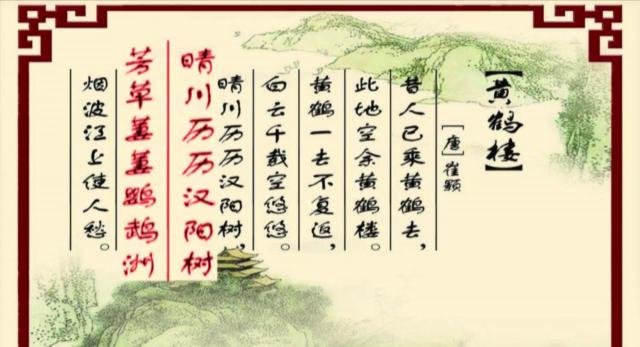 【黄鹤楼】
[唐]崔颢
昔人已乘黄鹤去,
此地空余黄鹤楼。
黄鹤一去不复返,
白云千载空悠悠。
晴川历历汉阳树,
晴川历历汉阳树
芳草萋萋鹦鹉洲
烟波江上使人愁。